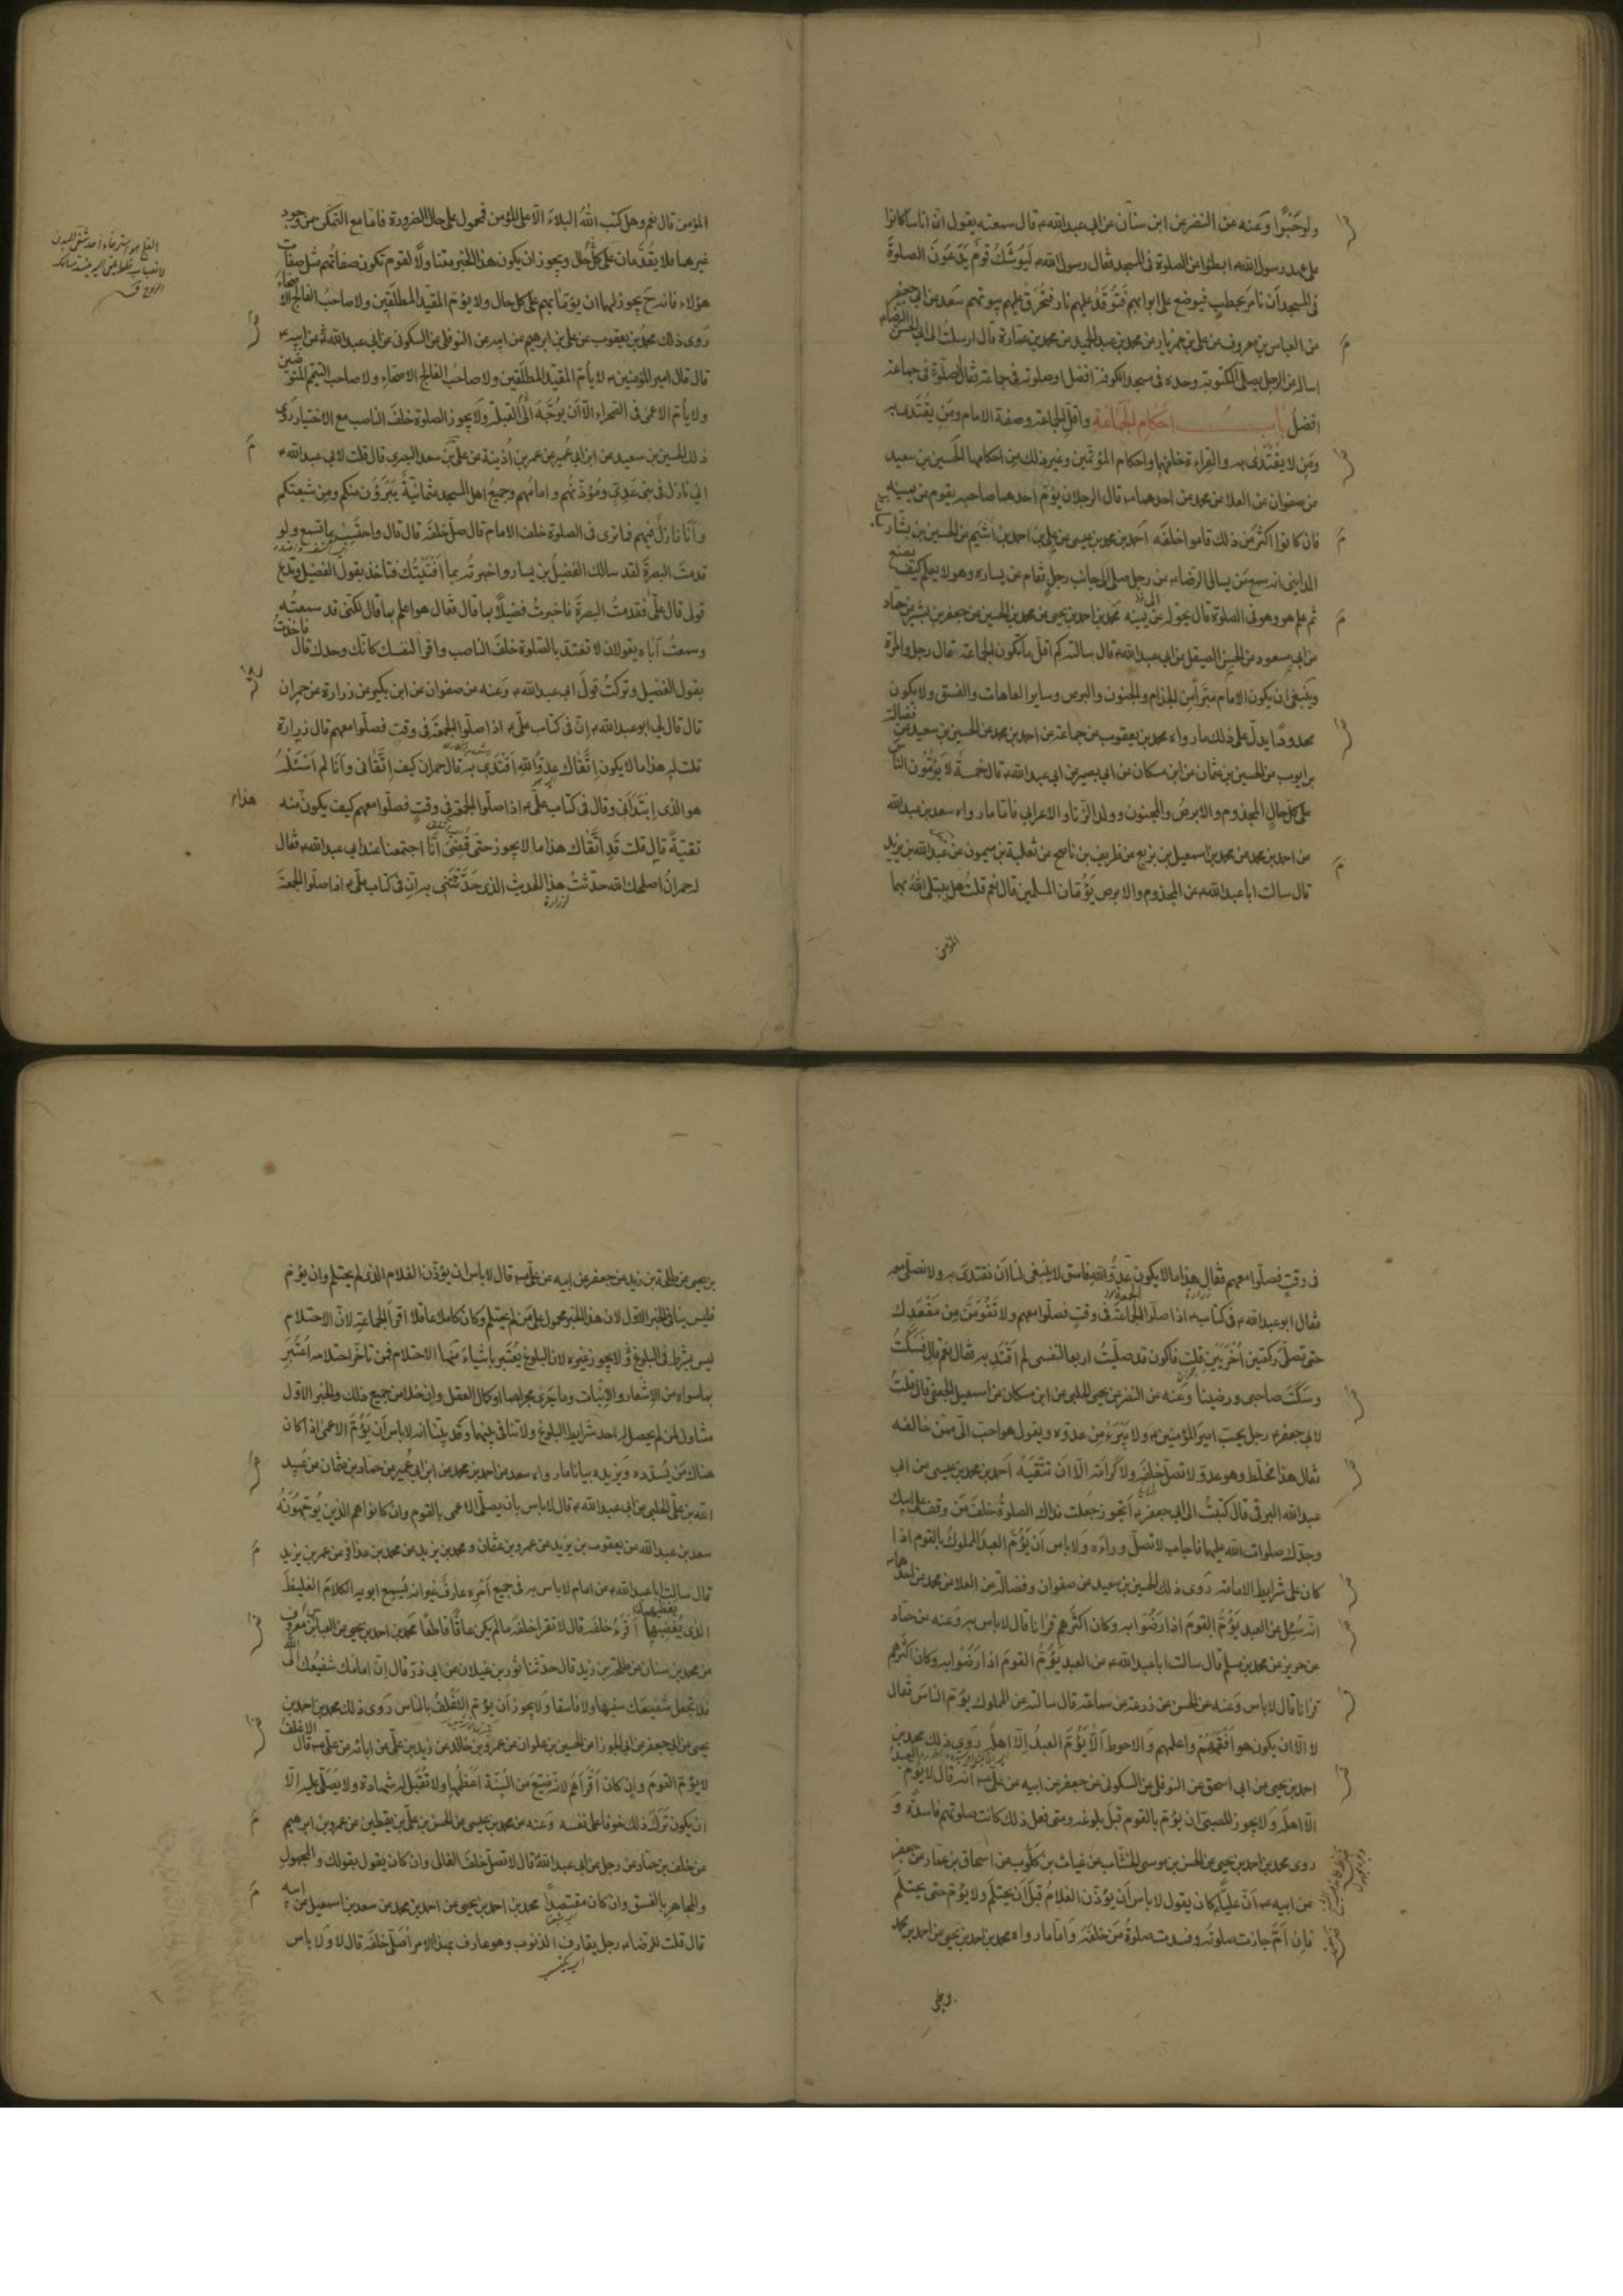 ولو حَبْوًا وَعَنه عن النضر عن ابن سنان عن ابی عبدالله ع قال سمعته يقول انّ اناسا كانوا
على عهد رسول الله ص ابطئوا عن الصلوة فى المسجد فقال رسول الله ص لَيُوشك قومٌ يَدَعُونَ الصلوةَ
فى المسجد أن نامر بحطبٍ فيوضع على ابوابهم فتُوقَدُ عليهم نار فتُحرَقُ عليهم بيوتهم سَعد عن ابى جعفر
عن العباس بن معروف عن على بن مهزيار عن محمد بن عبد الحميد عن محمد بن عمارة قال ارسلتُ الى ابى الحسن الرضا ع
اساله عن الرجل يصلى المكتوبة وحده فى مسجد الكوفة افضل او صلوته فى جماعة فقال الصلوة فى جماعة
افضل بابُ احكام الجَماعَةِ واقلّ الجماعة وصفة الامام ومَن يُقْتَدى به
ومَن لا يُقْتَدى به والقراءة خلفهما واحكام المؤتمّين وغير ذلك من احكامها الحسين بن سعيد
عن صفوان عن العلا عن محمد عن احدهما ع قال الرجلان يؤمّ احدهما صاحبه يقوم عن يمينه
فان كانوا اكثر من ذلك قاموا خلفه احمد بن محمد بن عيسى عن على بن احمد بن اشيم عن الحسين بن بشار
المداينى انه سمع مَن يسال الرضا ع عن رجل صلى الى جانب رجلٍ فقام عن يساره وهو لا يعلم كيف يصنع
ثم علم هو وهو فى الصلوة قال يحوله عن يمينه محمد بن احمد بن يحيى عن محمد بن الحسين عن جعفر بن بشير عن حماد
عن ابى مسعود عن الحسن الصيقل عن ابى عبدالله ع قال سالته كم اقلّ ما تكون الجماعة قال رجل وامراة
وينبغى ان يكون الامام مبرّأ من الجذام والجنون والبرص وساير العاهات والفسق ولا يكون
محدودًا يدلّ على ذلك ما رواه محمد بن يعقوب عن جماعة عن احمد بن محمد عن الحسين بن سعيد عن فضالة
بن ايوب عن الحسين بن عثمان عن ابن مسكان عن ابى بصير عن ابى عبدالله ع قال خمسةٌ لا يَؤمّون الناسَ
على كل حالٍ المجذوم والابرصُ والمجنون وولد الزنا والاعرابى فاما ما رواه سعد بن عبدالله
عن احمد بن محمد عن محمد بن اسمعيل بن بزيع عن ظريف بن ناصح عن ثعلبة بن ميمون عن عبدالله بن يزيد
قال سالت ابا عبدالله ع عن المجذوم والابرص يَؤُمّان المسلمين قال نعم قلتُ هل يبتلى اللهُ بهما
المؤمن
المؤمن قال نعم وهل كتب اللهُ البلاءَ الّا على المؤمن فمحمول على حال الضرورة فاما مع التمكّن من وجود
غيرهما فلا يقدَّمان على كلّ حال ويجوز ان يكون هذا الخبر متناولًا لقوم تكون صفاتُهم مثل صفات
هؤلاء فانه ح يجوز لهما ان يؤمّا بهم على كل حال ولا يؤمّ المقيّد المطلَقين ولا صاحبُ الفالج الاصحّاء
رَوى ذلك محمد بن يعقوب عن على بن ابرهيم عن ابيه عن النوفلى عن السكونى عن ابى عبدالله ع عن ابيه ع
قال قال امير المؤمنين ع لا يأمّ المقيّد المطلَقين ولا صاحبُ الفالج الاصحّاءِ ولا صاحب التيمم المتوضين
ولا يأمّ الاعمى فى الصحراء الّا أن يوُجَّهَ الى القبلة ولا يجوز الصلوة خلفَ الناصب مع الاختيار رَوَى
ذلك الحسين بن سعيد عن ابن ابى عُمير عن عمر بن اُذَينة عن على بن سعد البصرى قال قلت لابى عبدالله ع
انى نازل فى بنى عَدِىّ ومُؤذّنُهم وامامُهم وجميعُ اهل المسجد عثمانيّةٌ يَتَبَرَّؤُن منكم ومن شيعتكم
وأنَا نازلٌ فيهم فما ترى فى الصلوة خلف الامام قال صلّ خلفَه قال قال واحتَسِبْ بما تسمع ولو
قدمتَ البصرةَ لقد سالك الفضيلُ بن يسار واخبرتُه بما أفْتَيْتُك فتاخذ بقول الفضيل وتدع
قولى قال علىٌّ فقدمتُ البصرةَ فاخبرتُ فضيلًا بما قال فقال هو اعلم بما قال لكنّى قد سمعتُه
وسمعتُ اَباه يقولان لا تعتدّ بالصلوة خلفَ الناصب واقرأ لنفسك كانّك وحدك قال فاخذتُ
بقول الفضيل وتركتُ قولَ ابى عبدالله ع وعَنه عن صفوان عن ابن بكير عن زرارة عن حمران
قال قال لى ابو عبدالله ع اِنّ فى كتاب علىّ ع اذا صلّوا الجمعةَ فى وقتٍ فصلّوا معهم قال زرارة
قلت له هذا ما لا يكون اِتَّقاك عدوُّ اللهِ اَقتَدِى به قال حمران كيف اِتَّقانى وأنا لم اَسْئَلْهُ
هو الذى اِبْتَدَأَنى وقال فى كتاب علىّ ع اذا صلّوا الجمعة فى وقتٍ فصلّوا معهم كيف يكون منه هذا
تقيّةٌ قال قلت قد اتَّقاك هذا ما لا يجوز حتى قُضِىَ أنّا اجتمعنا عند ابى عبدالله ع فقال
له حمرانُ اصلحك الله حدّثتُ هذا الحديث الذى حَدّثْتَنى به ان فى كتاب علىّ ع اذا صلّوا الجمعةَ
لزرارة
فى وقتٍ فصلّوا معهم فقال هذا ما لا يكون عدوُّ اللهِ فاسق لا ينبغى لنا أن نقتدىَ به ولا نصلّى معه
فقال ابو عبدالله ع فى كتاب ع اذا صلّوا الجماعةَ فى وقتٍ فصلّوا معهم ولا تَقُومَنّ مِن مَقْعَدِك
حتى تصلّىَ ركعتين اُخْرَيَيْن قلت فاكون قد صلّيتُ اربعا لنفسى لم اَقْتَدِ به فقال نعم قال فسَكَتُّ
وسَكَتَ صاحبى ورضينا وَعَنه عن النضر عن يحيى الحلبى عن ابن مسكان عن اسمعيل الجعفى قال قلتُ
لابى جعفر ع رجل يحبّ اميرَ المؤمنين ع ولا يَتَبَرّءُ مِن عدوّه ويقول هو احبّ الىّ ممّن خالفه
فقال هذا مخلّط وهو عدوّ لا تصلّ خلفَه ولا كَرامَةَ الّا اَن تتّقيَهُ اَحمد بن محمد بن عيسى عن ابى
عبدالله البرقى قال كتبتُ الى ابى جعفر ع أتجوز جُعلت فداك الصلوةُ خلفَ مَن وقف على ابيك
وجدّك صلوات الله عليهما فاجاب لا تصلّ وراءَه ولا باس أن يَؤُمّ العبدُ المملوكُ بالقوم اذا
كان على شرايط الامامة رَوى ذلك الحسين بن سعيد عن صفوان وفضالة عن العلا عن محمد عن احدهما ع
انه سُئِل عن العبد يَؤُمُّ القومَ اذا رَضُوا به وكان اكثرُهم قرانا قال لا باس به وَعَنه عن حمّاد
عن حريز عن محمد بن مسلم قال سالت ابا عبدالله ع عن العبد يَؤُمُّ القومَ اذا رَضُوا به وكان اكثرَهم
قرانا قال لا باس وَعَنه عن الحسن عن زرعة عن سماعة قال سالته عن المملوك يؤمّ الناسَ فقال
لا الّا ان يكون هو اَفْقَهَهُمْ واعلمهم وَالاحوط اَلّا يَؤُمَّ العبدُ اِلّا اهلَه رَوى ذلك محمد بن
احمد بن يحيى عن ابى اسحق عن النوفلى عن السكونى عن جعفر عن ابيه عن علىّ ع انّه قال لا يَؤمّ العبدُ
الّا اهلَه وَلا يجوز للصبى ان يؤمّ بالقوم قبل بلوغه ومتى فعل ذلك كانت صلوتهم فاسدةً وَ
روى محمد بن احمد بن يحيى عن الحسن بن موسى الخشّاب عن غياث بن كلّوب عن اسحاق بن عمار عن جعفر
عن ابيه ع اَنّ عليًّا ع كان يقول لا باس أن يؤذّن الغلامُ قبلَ أن يحتلمَ ولا يؤمّ حتى يحتلمَ
فاِن اَمّ جازت صلوتُه وفسدت صلوةُ مَن خلفَه وَامّا ما رواه محمد بن احمد بن يحيى عن احمد بن محمد
بن يحيى عن طلحة بن زيد عن جعفر عن ابيه عن علىّ ع قال لا باس ان يؤذّن الغلام الذى لم يحتلم وان يؤمّ
فليس ينافى الخبر الاول لان هذا الخبر محمول على مَن لم يحتلم وكان كاملا عاقلا اقرأ الجماعةِ لانّ الاحتلام
ليس بشرط فى البلوغ لا يجوز غيره لان البلوغ يُعتَبر باشياءَ منها الاحتلام فمن تاخّر احتلامه اُعتُبِرَ
بما سواه من الاِشعار والاِنبات وما جَرى مجراهما او كمال العقل وان خلا من جميع ذلك والخبر الاول
متناول لمن لم يحصل له احد شرايط البلوغ ولا تنافى بينهما وَقد بيّنّا انه لا باس أن يَؤُمّ الاعمى اذا كان
هناك مَن يُسدّده وَيزيده بيانا ما رواه سعد عن احمد بن محمد عن ابن ابى عُمير عن حماد بن عثمان عن عُبيد
الله بن علىّ الحلبى عن ابى عبدالله ع قال لا باس بأن يصلّى الاعمى بالقوم وان كانوا هم الذين يُوَجّهُونَهُ
سعد بن عبدالله عن يعقوب بن يزيد عن عمرو بن عثمان ومحمد بن يزيد عن محمد بن عذافر عن عمر بن يزيد
قال سالت ابا عبدالله ع عن امام لا باس به فى جميع اَمْرِه عارف غير انه يُسمِع ابويه الكلامَ الغليظَ
الذى يُغضِبُهما اَقرءُ خلفَه قال لا تقرا خلفَه ما لم يكن عاقًّا قاطعًا محمد بن احمد بن يحيى عن العباس بن معروف
عن محمد بن سنان عن طلحة بن زيد قال حدّثنا ثور بن غيلان عن ابى ذرّ قال اِنّ اِمامَك شفيعُك الى الله
فلا تجعل شفيعَك سفيها ولا فاسقا وَلا يجوز أن يؤمّ الاَغْلَفُ بالناس رَوى ذلك محمد بن احمد بن
يحيى عن ابى جعفر عن ابى الجوزا عن الحسين بن علوان عن عمرو بن خالد عن زيد بن علىّ عن ابائه عن علىّ ع قال الاغلفُ
لا يؤمّ القومَ وان كان اَقْرأَهم لانه ضَيّعَ من السُنّة اَعْظَمَها ولا تُقبَل له شهادة ولا يُصَلّى عليه الّا
ان يكون تَرَكَ ذلك خوفا على نفسه وَعَنه عن محمد بن عيسى عن الحسن بن علىّ بن يقطين عن عمرو بن ابرهيم
عن خلف بن حمّاد عن رجل عن ابى عبدالله ع قال لا تصلّ خلفَ الغالى وان كان يقول بقولك والمجهولِ
والمجاهرِ بالفسق وان كان مقتصدًا محمد بن احمد بن يحيى عن احمد بن محمد عن سعد بن اسمعيل عن ابيه
قال قلت للرضا ع رجل يقارف الذنوب وهو عارف بهذا الامر اُصلّى خلفَه قال لا وَلا باس